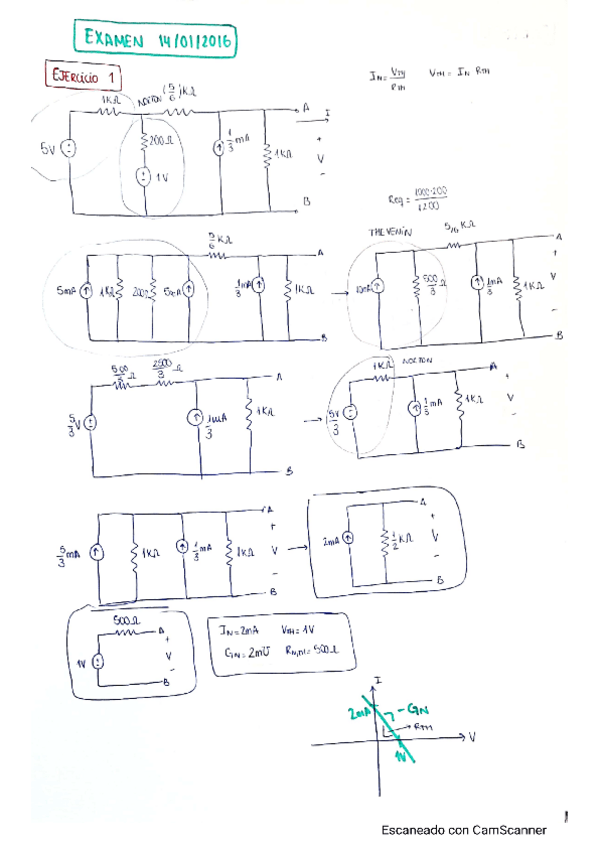 EXAMEN 14/01/2016
EJERCICIO 1
I_N = V_TH / R_TH    V_TH = I_N R_TH
1KΩ  NORTON  (5/6)KΩ  A  I
5V  200Ω  1/3 mA  1KΩ  +  V  -
1V
B
Req = 1000·200 / 1200
THEVENIN  5/6 KΩ  A
5/6 KΩ  A
5mA  1KΩ  200Ω  5mA  1/3 mA  1KΩ
B
10mA  500/3 Ω  1/3 mA  1KΩ  +  V  -
B
500/3 Ω  2500/3 Ω  A
5/3 V  1/3 mA  1KΩ
B
1KΩ  NORTON  A
5V/3  1/3 mA  1KΩ  +  V  -
B
A
5/3 mA  1KΩ  1/3 mA  1KΩ  +  V  -
B
A
2mA  1/2 KΩ  +  V  -
B
500Ω  A
1V  +  V  -
B
I_N = 2mA  V_TH = 1V
G_N = 2m℧  R_N,TH = 500Ω
I
2mA  -G_N
R_TH
V
1V
Escaneado con CamScanner